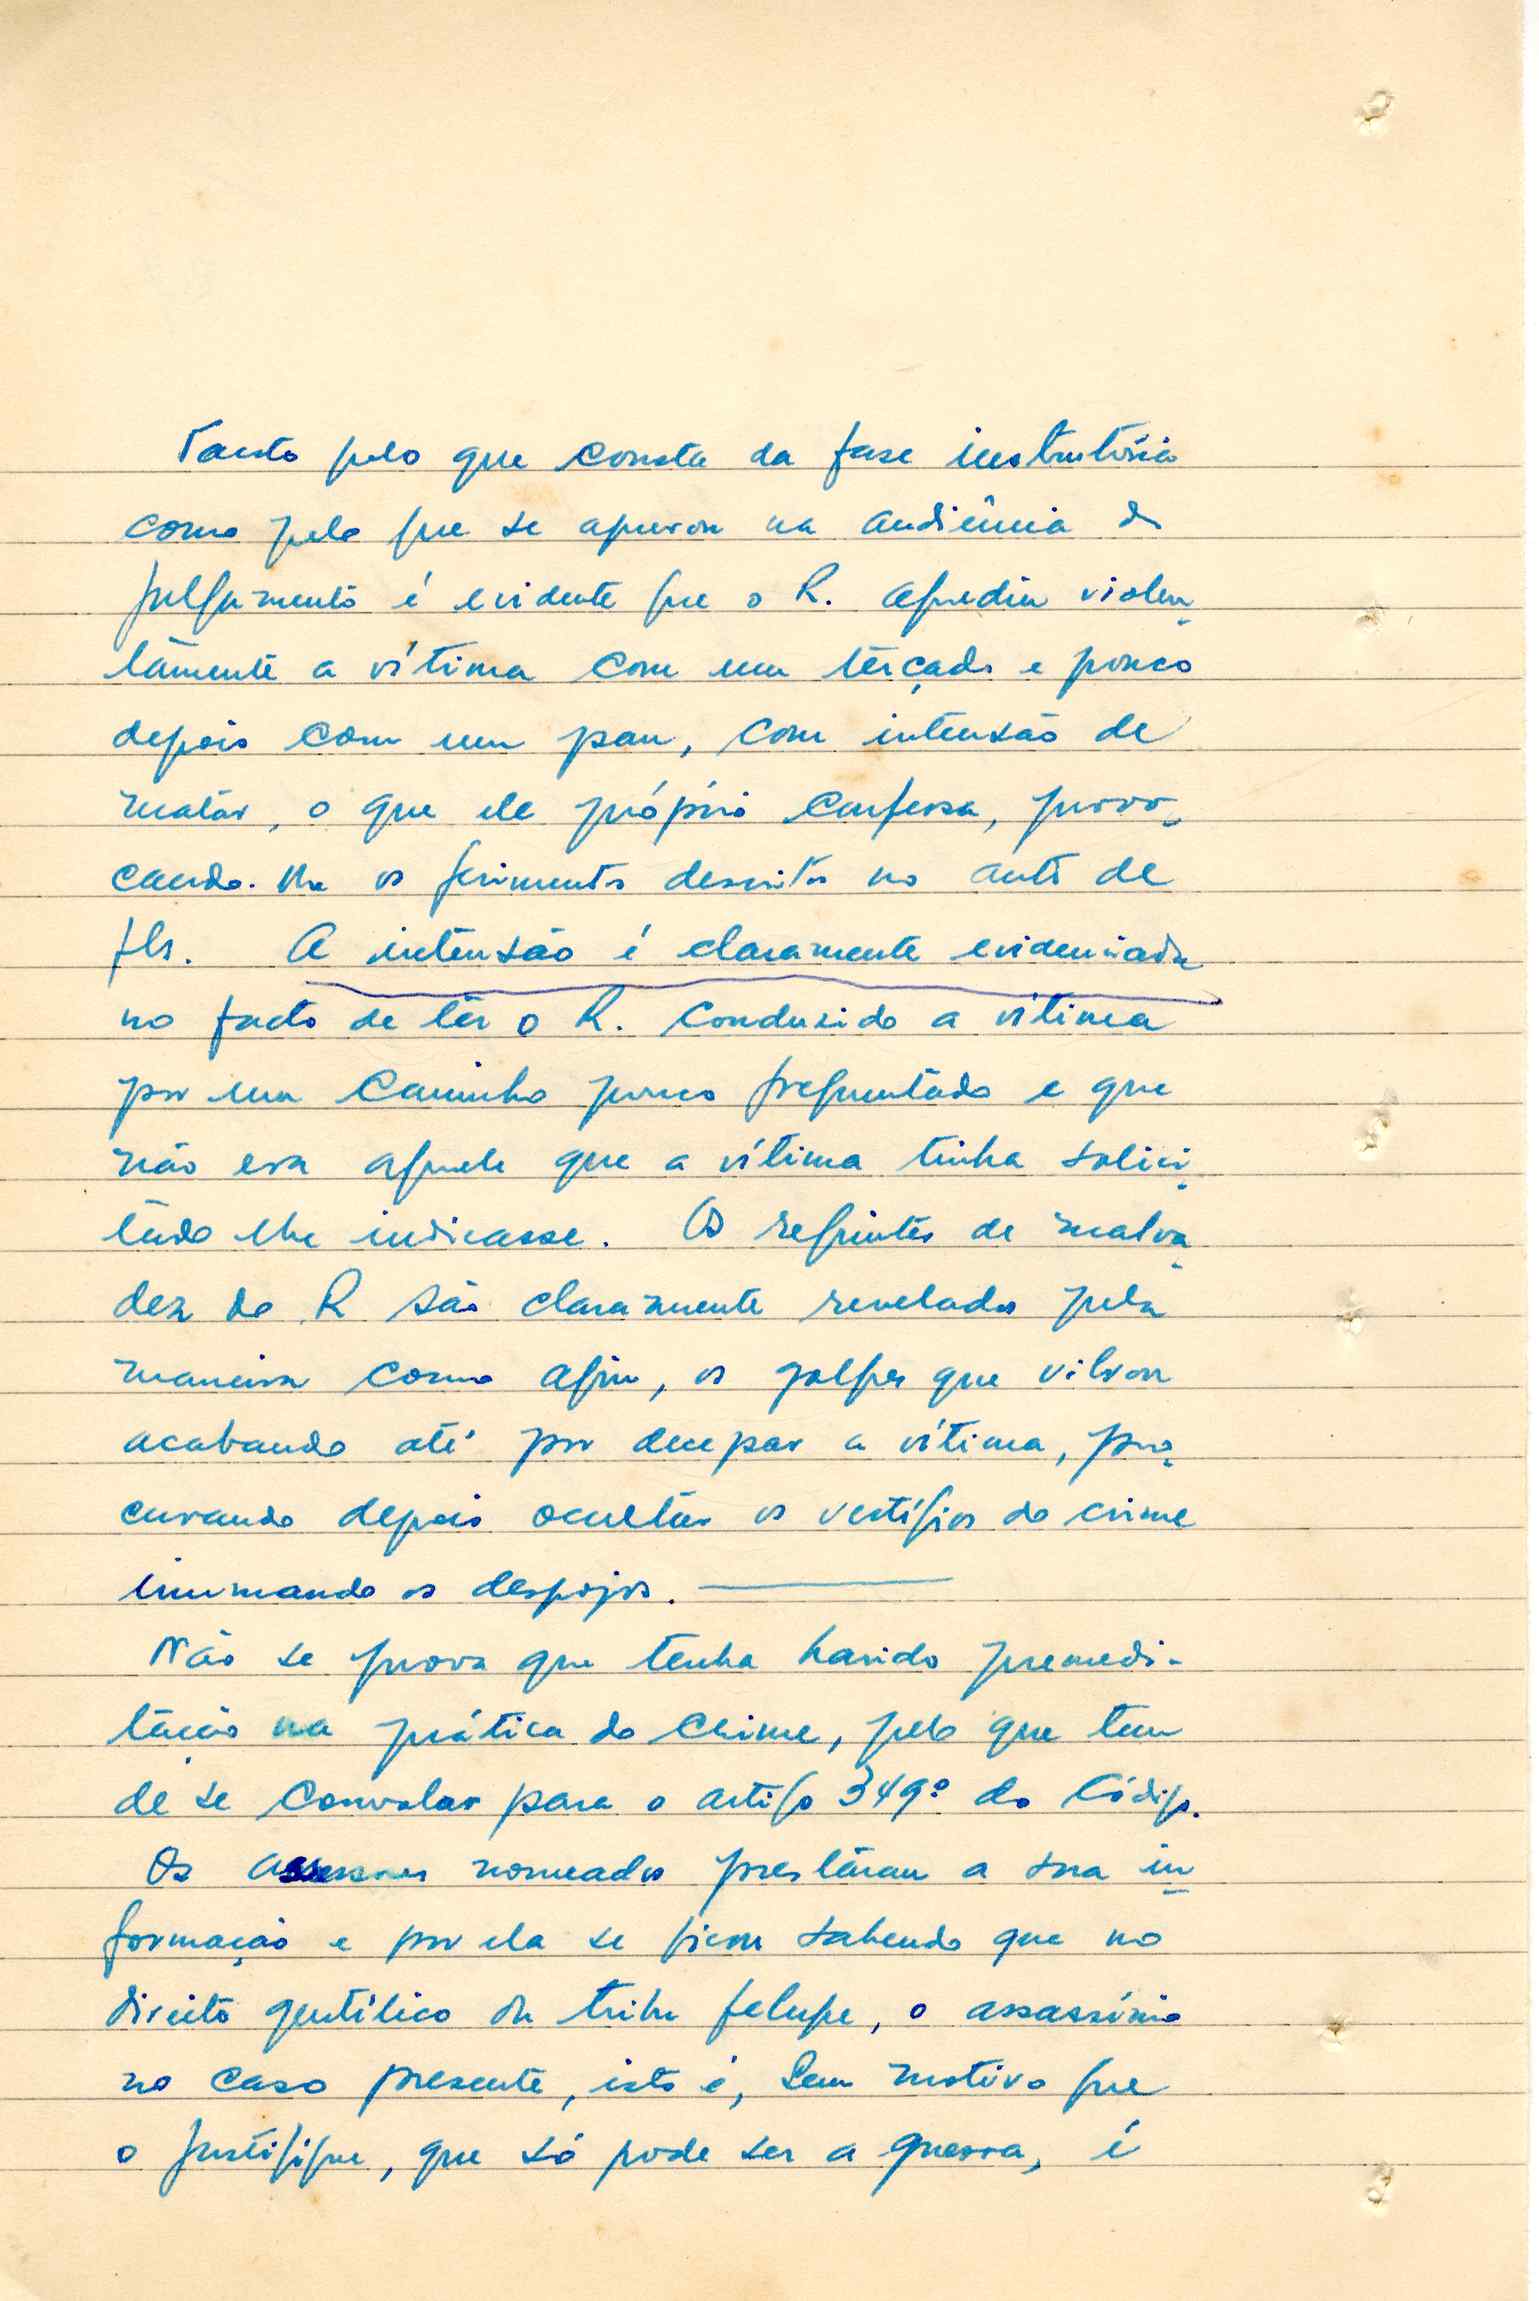 Tanto pelo que consta da fase instrutória
como pelo que se apurou na audiência de
julgamento é evidente que o R. agrediu violen-
tamente a vítima com um terçado e pouco
depois com um pau, com intensão de
matar, o que ele próprio confessa, provo-
cando-lhe os ferimentos descritos no auto de
fls. A intensão é claramente evidenciada
no facto de ter o R. conduzido a vítima
por um caminho pouco frequentado e que
não era aquele que a vítima tinha solici-
tado lhe indicasse. Os requintes de malva-
dez do R são claramente revelados pela
maneira como agiu, os golpes que vibrou
acabando até por decepar a vítima, pro-
curando depois ocultar os vestígios do crime
inumando os despojos.
Não se prova que tenha havido premedi-
tação na prática do crime, pelo que tem
de se convolar para o artigo 349º do Código.
Os assessores nomeados prestaram a sua in-
formação e por ela se ficou sabendo que no
direito gentílico da tribu felupe, o assassínio
no caso presente, isto é, sem motivo que
o justifique, que só pode ser a guerra, é